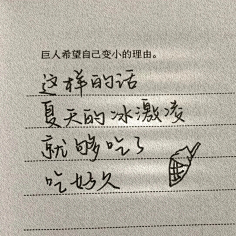 巨人希望自己变小的理由。
这样的话
夏天的冰激凌
就够吃了
吃好久